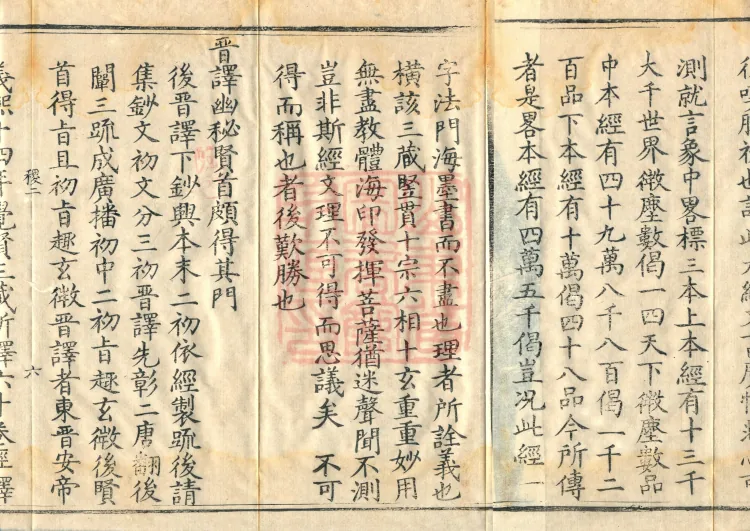 測就言象中畧標三本上本經有十三千
大千世界微塵數偈一四天下微塵數品
中本經有四十九萬八千八百偈一千二
百品下本經有十萬偈四十八品今所傳
者是畧本經有四萬五千偈豈況此經一
字法門海墨書而不盡也理者所詮義也
橫該三藏竪貫十宗六相十玄重重妙用
無盡教體海印發揮菩薩猶迷聲聞不測
豈非斯經文理不可得而思議矣 不可
得而稱也者後歎勝也
晉譯幽秘賢首頗得其門
後晉譯下鈔興本末二初依經製䟽後請
集鈔文初文分三初晉譯先彰二唐翻後
闡三䟽成廣播初中二初旨趣玄微後賢
首得旨且初旨趣玄微晉譯者東晉安帝
義熙十四年覺賢三藏所譯六十卷經譯
稷二
六